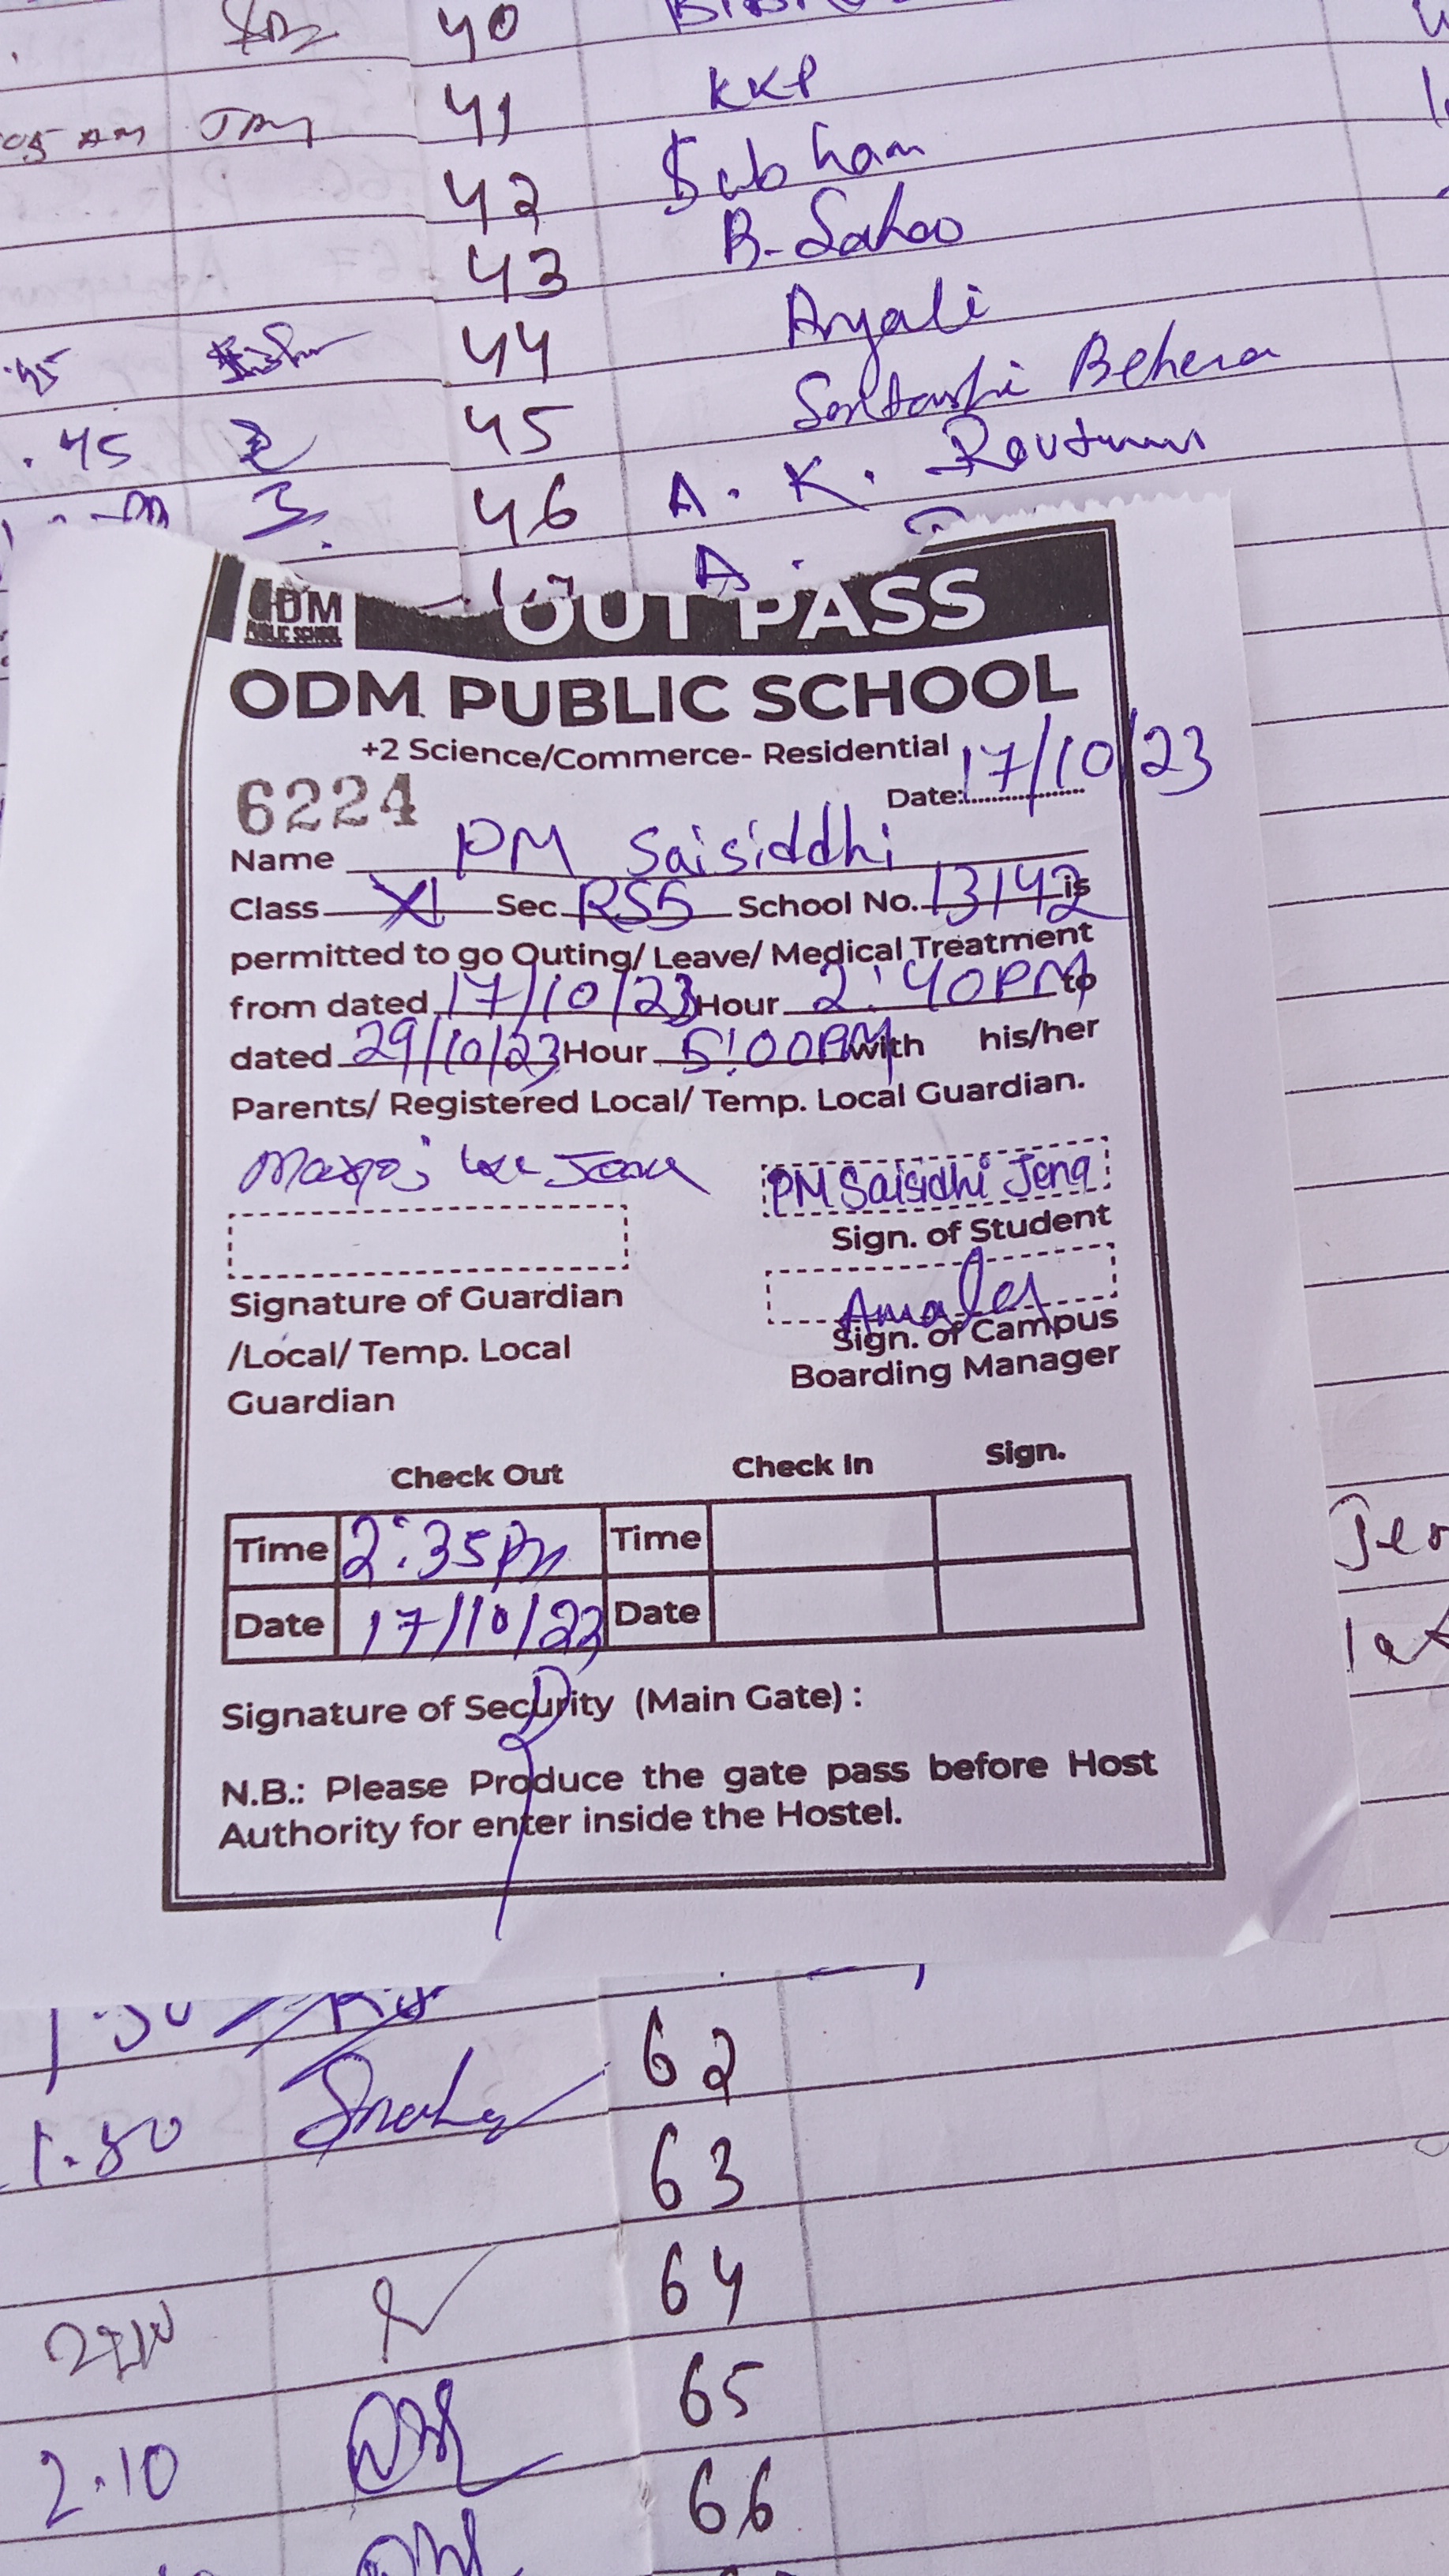 40
41 KKP
05 AM
42 Subham
43 B. Sahoo
44 Anjali
.45 45 Behera
46 A. K.
A.
ODM
PUBLIC SCHOOL
OUT PASS
ODM PUBLIC SCHOOL
+2 Science/Commerce- Residential
6224 Date: 17/10/23
Name PM Saisiddhi
Class XI Sec. RS5 School No. 13142 is
permitted to go Outing/ Leave/ Medical Treatment
from dated 17/10/23 Hour 2:40PM to
dated 29/10/23 Hour 5:00PM with his/her
Parents/ Registered Local/ Temp. Local Guardian.
Manoj Jena PM Saisidhi Jena
Sign. of Student
Signature of Guardian
/Local/ Temp. Local
Guardian
Sign. of Campus
Boarding Manager
Check Out Check In Sign.
Time 2:35pm Time
Date 17/10/23 Date
Signature of Security (Main Gate) :
N.B.: Please Produce the gate pass before Host
Authority for enter inside the Hostel.
62
1.50
63
64
65
2.10
66